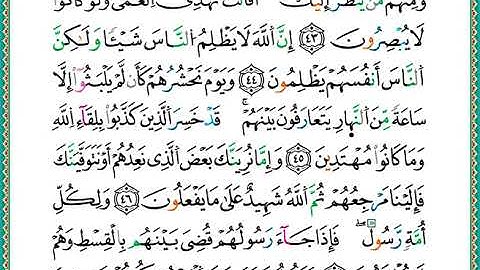 وَمِنْهُم مَّن يَنظُرُ إِلَيْكَ ۚ أَفَأَنتَ تَهْدِى ٱلْعُمْىَ وَلَوْ كَانُوا۟
لَا يُبْصِرُونَ ﴿٤٣﴾ إِنَّ ٱللَّهَ لَا يَظْلِمُ ٱلنَّاسَ شَيْـًٔا وَلَـٰكِنَّ
ٱلنَّاسَ أَنفُسَهُمْ يَظْلِمُونَ ﴿٤٤﴾ وَيَوْمَ يَحْشُرُهُمْ كَأَن لَّمْ يَلْبَثُوٓا۟ إِلَّا
سَاعَةً مِّنَ ٱلنَّهَارِ يَتَعَارَفُونَ بَيْنَهُمْ ۚ قَدْ خَسِرَ ٱلَّذِينَ كَذَّبُوا۟ بِلِقَآءِ ٱللَّهِ
وَمَا كَانُوا۟ مُهْتَدِينَ ﴿٤٥﴾ وَإِمَّا نُرِيَنَّكَ بَعْضَ ٱلَّذِى نَعِدُهُمْ أَوْ نَتَوَفَّيَنَّكَ
فَإِلَيْنَا مَرْجِعُهُمْ ثُمَّ ٱللَّهُ شَهِيدٌ عَلَىٰ مَا يَفْعَلُونَ ﴿٤٦﴾ وَلِكُلِّ
أُمَّةٍ رَّسُولٌ ۖ فَإِذَا جَآءَ رَسُولُهُمْ قُضِىَ بَيْنَهُم بِٱلْقِسْطِ وَهُمْ